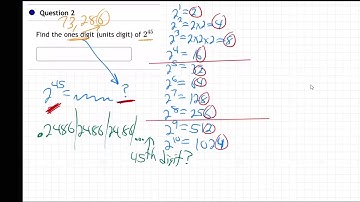 Question 2
73,286
Find the ones digit (units digit) of 2^45
2^45 = ?
.2486|2486|2486...
45th digit?
2^1 = 2
2^2 = 2x2 = 4
2^3 = 2x2x2 = 8
2^4 = 16
2^5 = 32
2^6 = 64
2^7 = 128
2^8 = 256
2^9 = 512
2^10 = 1024